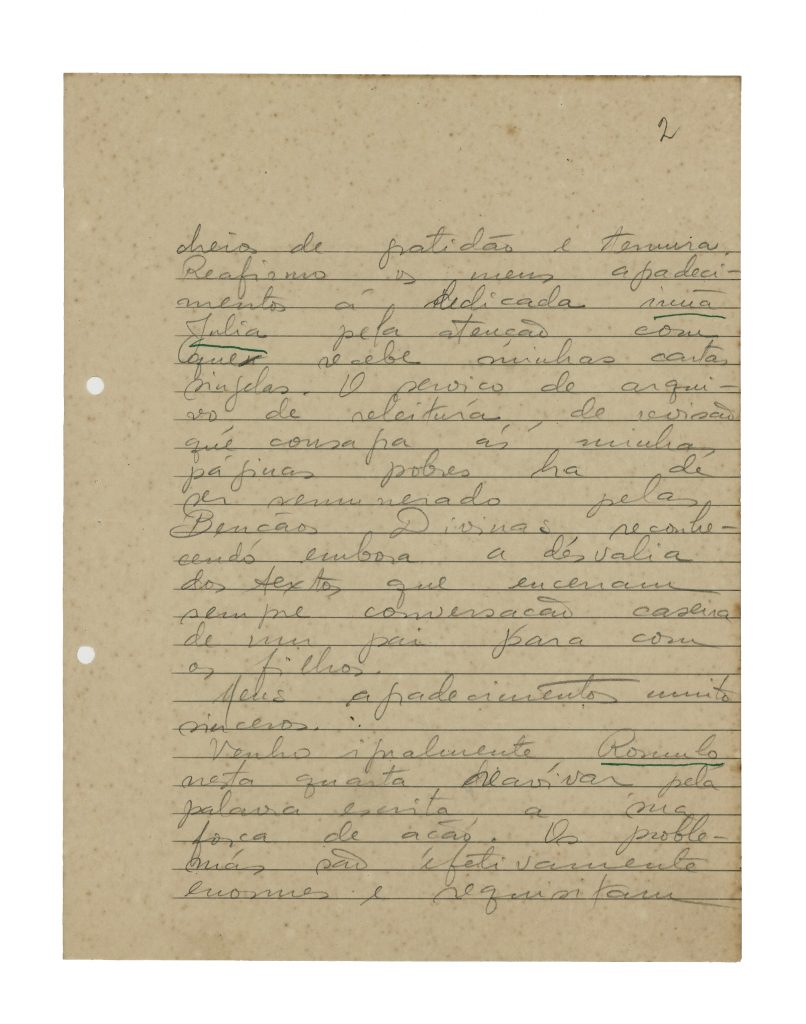 2
cheios de gratidão e ternura.
Reafirmo os meus agradeci-
mentos á dedicada irmã
Julia pela atenção com
que recebe minhas cartas
singelas. O serviço de arqui-
vo de releitura, de revisão
que consagra ás minhas
páginas pobres ha de
ser remunerado pelas
Bençãõs Divinas reconhe-
cendo embora a desvalia
dos textos que encerram
sempre conversação caseira
de um pai para com
os filhos.
Meus agradecimentos muito
sinceros.
Venho igualmente Romulo
nesta quarta reavivar pela
palavra escrita a sua
força de ação. Os proble-
mas são efetivamente
enormes e requisitam